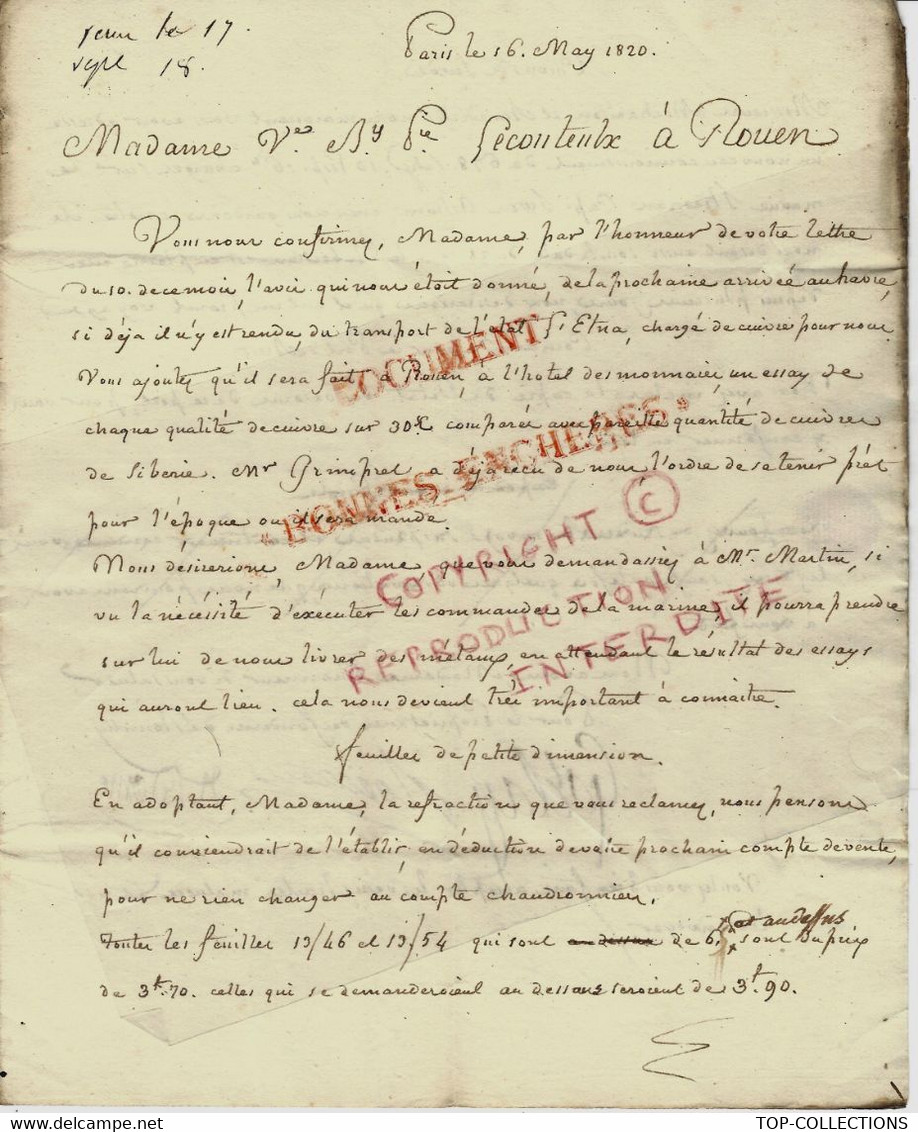 reçu le 17.
repe 18.
Paris le 16. May 1820.
Madame Ve. By. Pre. Lecouteulx à Rouen
Vous nous confirmez, Madame, par l'honneur de votre lettre
du 10. de ce mois, l'avis qui nous étoit donné, de la prochaine arrivée au havre,
si déja il n'y est rendu, du transport de l'état l'Etna, chargé de cuivre pour nous
Vous ajoutez qu'il sera fait à Rouen, à l'hotel des monnaies, un essay de
chaque qualité de cuivre sur 30 comparés avec pareille quantité de cuivres
de Siberie. Mr Grimpret a déja reçu de nous l'ordre de se tenir prêt
pour l'époque ou il sera mandé.
Nous désirerions, Madame, que vous demandassiez à Mr. Martin, si
vu la nécéssité d'exécuter les commandes de la marine, il pourra prendre
sur lui de nous livrer des métaux, en attendant le résultat des essays
qui auront lieu. cela nous devient très important à connaitre.
feuilles de petite dimension.
En adoptant, Madame, la refraction que vous reclamez, nous pensons
qu'il conviendrait de l'établir, en déduction de votre prochain compte de vente,
pour ne rien changer au compte chaudronnier.
et au dessus
Toutes les feuilles 13/46 et 13/54 qui sont au dessus de 6 sont du prix
de 3t.70. celles qui se demanderoient au dessous seroient de 3t.90.
DOCUMENT
"BONNES_ENCHERES"
COPYRIGHT ©
REPRODUCTION
INTERDITE
TOP-COLLECTIONS